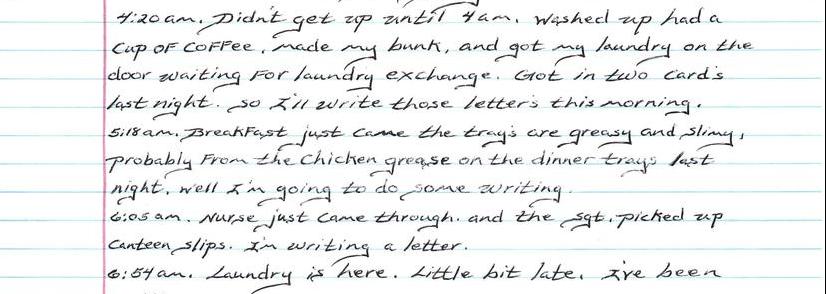 4:20 am. Didn't get up until 4 am. Washed up had a
Cup OF COFFee, made my bunk, and got my laundry on the
door waiting For laundry exchange. Got in two card's
last night. So I'll write those letter's this morning.
5:18 am. BreakFast just came the tray's are greasy and slimy,
probably From the Chicken grease on the dinner trays last
night, well I'm going to do some writing.
6:05 am. Nurse just came through. and the sgt. picked up
Canteen slips. I'm writing a letter.
6:54 am. Laundry is here. Little bit late. I've been